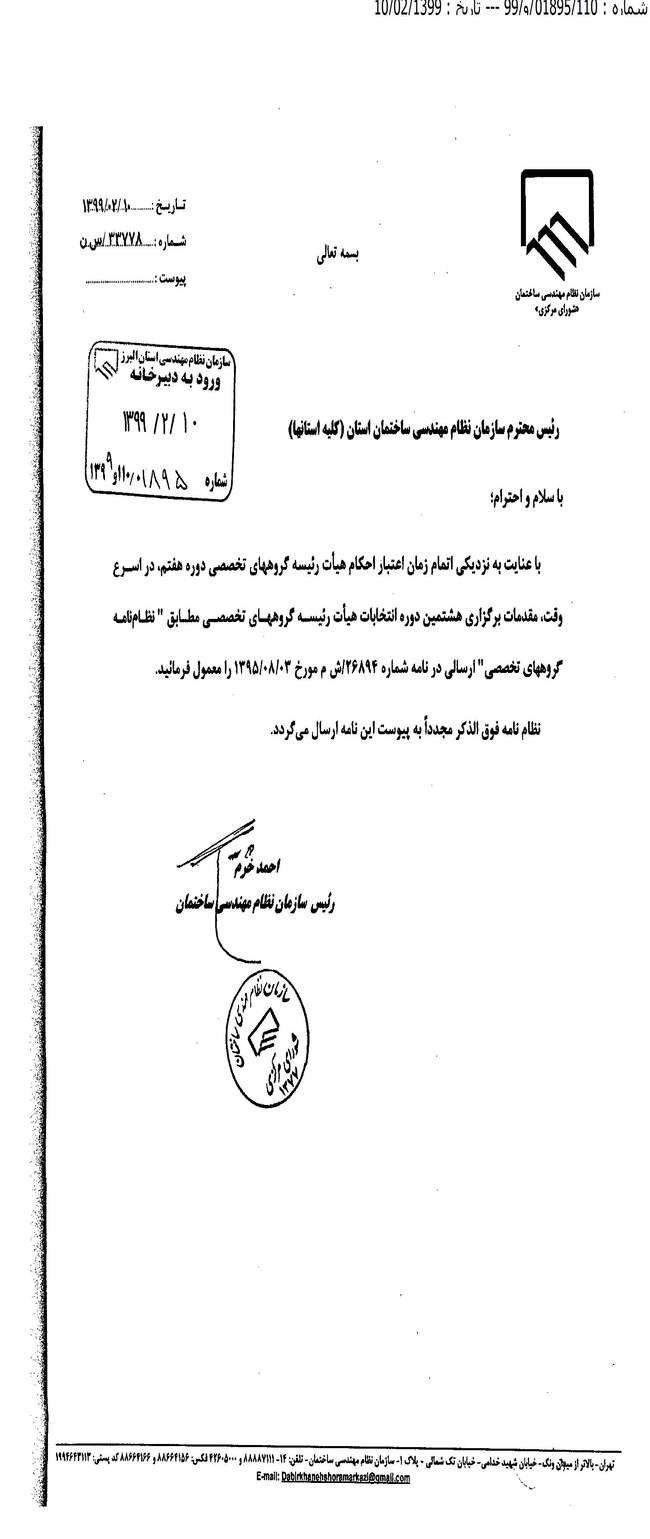 شماره : 99/و/01895/110 --- تاریخ : 10/02/1399
تـاریـخ :..........۱۳۹۹/۰۲/۱۰
شمـاره :.....۳۳۷۷۸/س.ن
پیوست :................................
بسمه تعالی
سازمان نظام مهندسی ساختمان
«شورای مرکزی»
سازمان نظام مهندسی استان البرز
ورود به دبیرخانه
۱۳۹۹ /۲/ ۱۰
شماره
رئیس محترم سازمان نظام مهندسی ساختمان استان (کلیه استانها)
با سلام و احترام؛
با عنایت به نزدیکی اتمام زمان اعتبار احکام هیأت رئیسه گروههای تخصصی دوره هفتم، در اسـرع
وقت، مقدمات برگزاری هشتمین دوره انتخابات هیأت رئیســه گروههـای تخصصـی مطـابق " نظـام‌نامـه
گروههای تخصصی" ارسالی در نامه شماره ۲۶۸۹۴/ش م مورخ ۱۳۹۵/۰۸/۰۳ را معمول فرمائید.
نظام نامه فوق الذکر مجدداً به پیوست این نامه ارسال می‌گردد.
احمد خرم
رئیس سازمان نظام مهندسی ساختمان
سازمان نظام مهندسی ساختمان
شورای مرکزی
۱۳۷۷
تهران- بالاتر از میدان ونک- خیابان شهید خدامی- خیابان تک شمالی - پلاک ۱- سازمان نظام مهندسی ساختمان - تلفن: ۱۴- ۸۸۸۸۷۱۱۱ و ۴۲۶۰۵۰۰۰ فکس: ۸۸۶۶۴۱۵۶ و ۸۸۶۶۴۱۶۶ کد پستی: ۱۹۹۴۶۴۳۱۱۳
E-mail: Dabirkhanehshoramarkazi@gmail.com